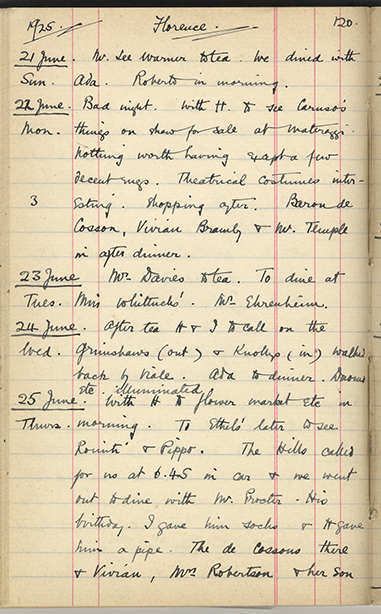 1925. Florence. 120.
21 June. Mr. Lee Warner to tea. We dined with
Sun. Ada. Roberto in morning.
22 June. Bad night. With H. to see Caruso's
Mon. things on show for sale at
Nothing worth having except a few
decent rugs. Theatrical costumes inter-
3 esting. Shopping after. Baron de
Cosson, Vivian Bramly & Mr. Temple
in after dinner.
23 June Mrs Davies to tea. To dine at
Tues. Miss Whittucks'. Mr Ehrenheim.
24 June. After tea H & I to call on the
Wed. Grimshaws (out) & Knollys (in) walked
back by Viale. Ada to dinner. Duomo
etc illuminated
25 June. With H to flower market etc in
Thurs. morning. To Ethels' later to see
& Pippo. The Hills called
for us at 6.45 in car & we went
out to dine with Mr. Procter. His
birthday. I gave him socks & H gave
him a pipe. The de Cossons there
& Vivian, Mrs Robertson & her son